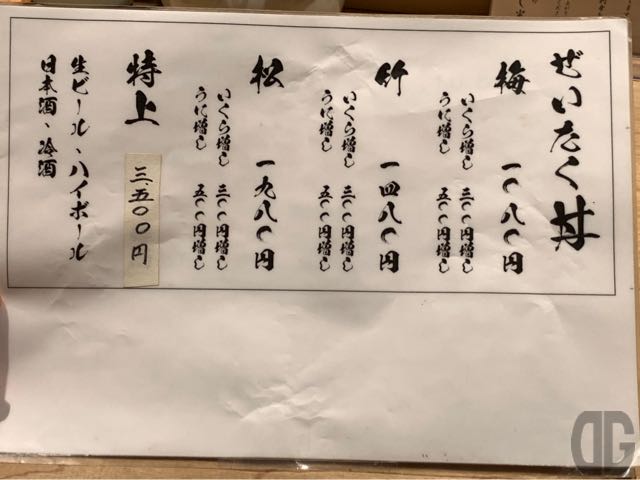 ぜいたく丼
梅 一〇八〇円
いくら増し 三〇〇円増し
うに増し 五〇〇円増し
竹 一四八〇円
いくら増し 三〇〇円増し
うに増し 五〇〇円増し
松 一九八〇円
いくら増し 三〇〇円増し
うに増し 五〇〇円増し
特上 三、五〇〇円
生ビール、ハイボール
日本酒、冷酒
DG